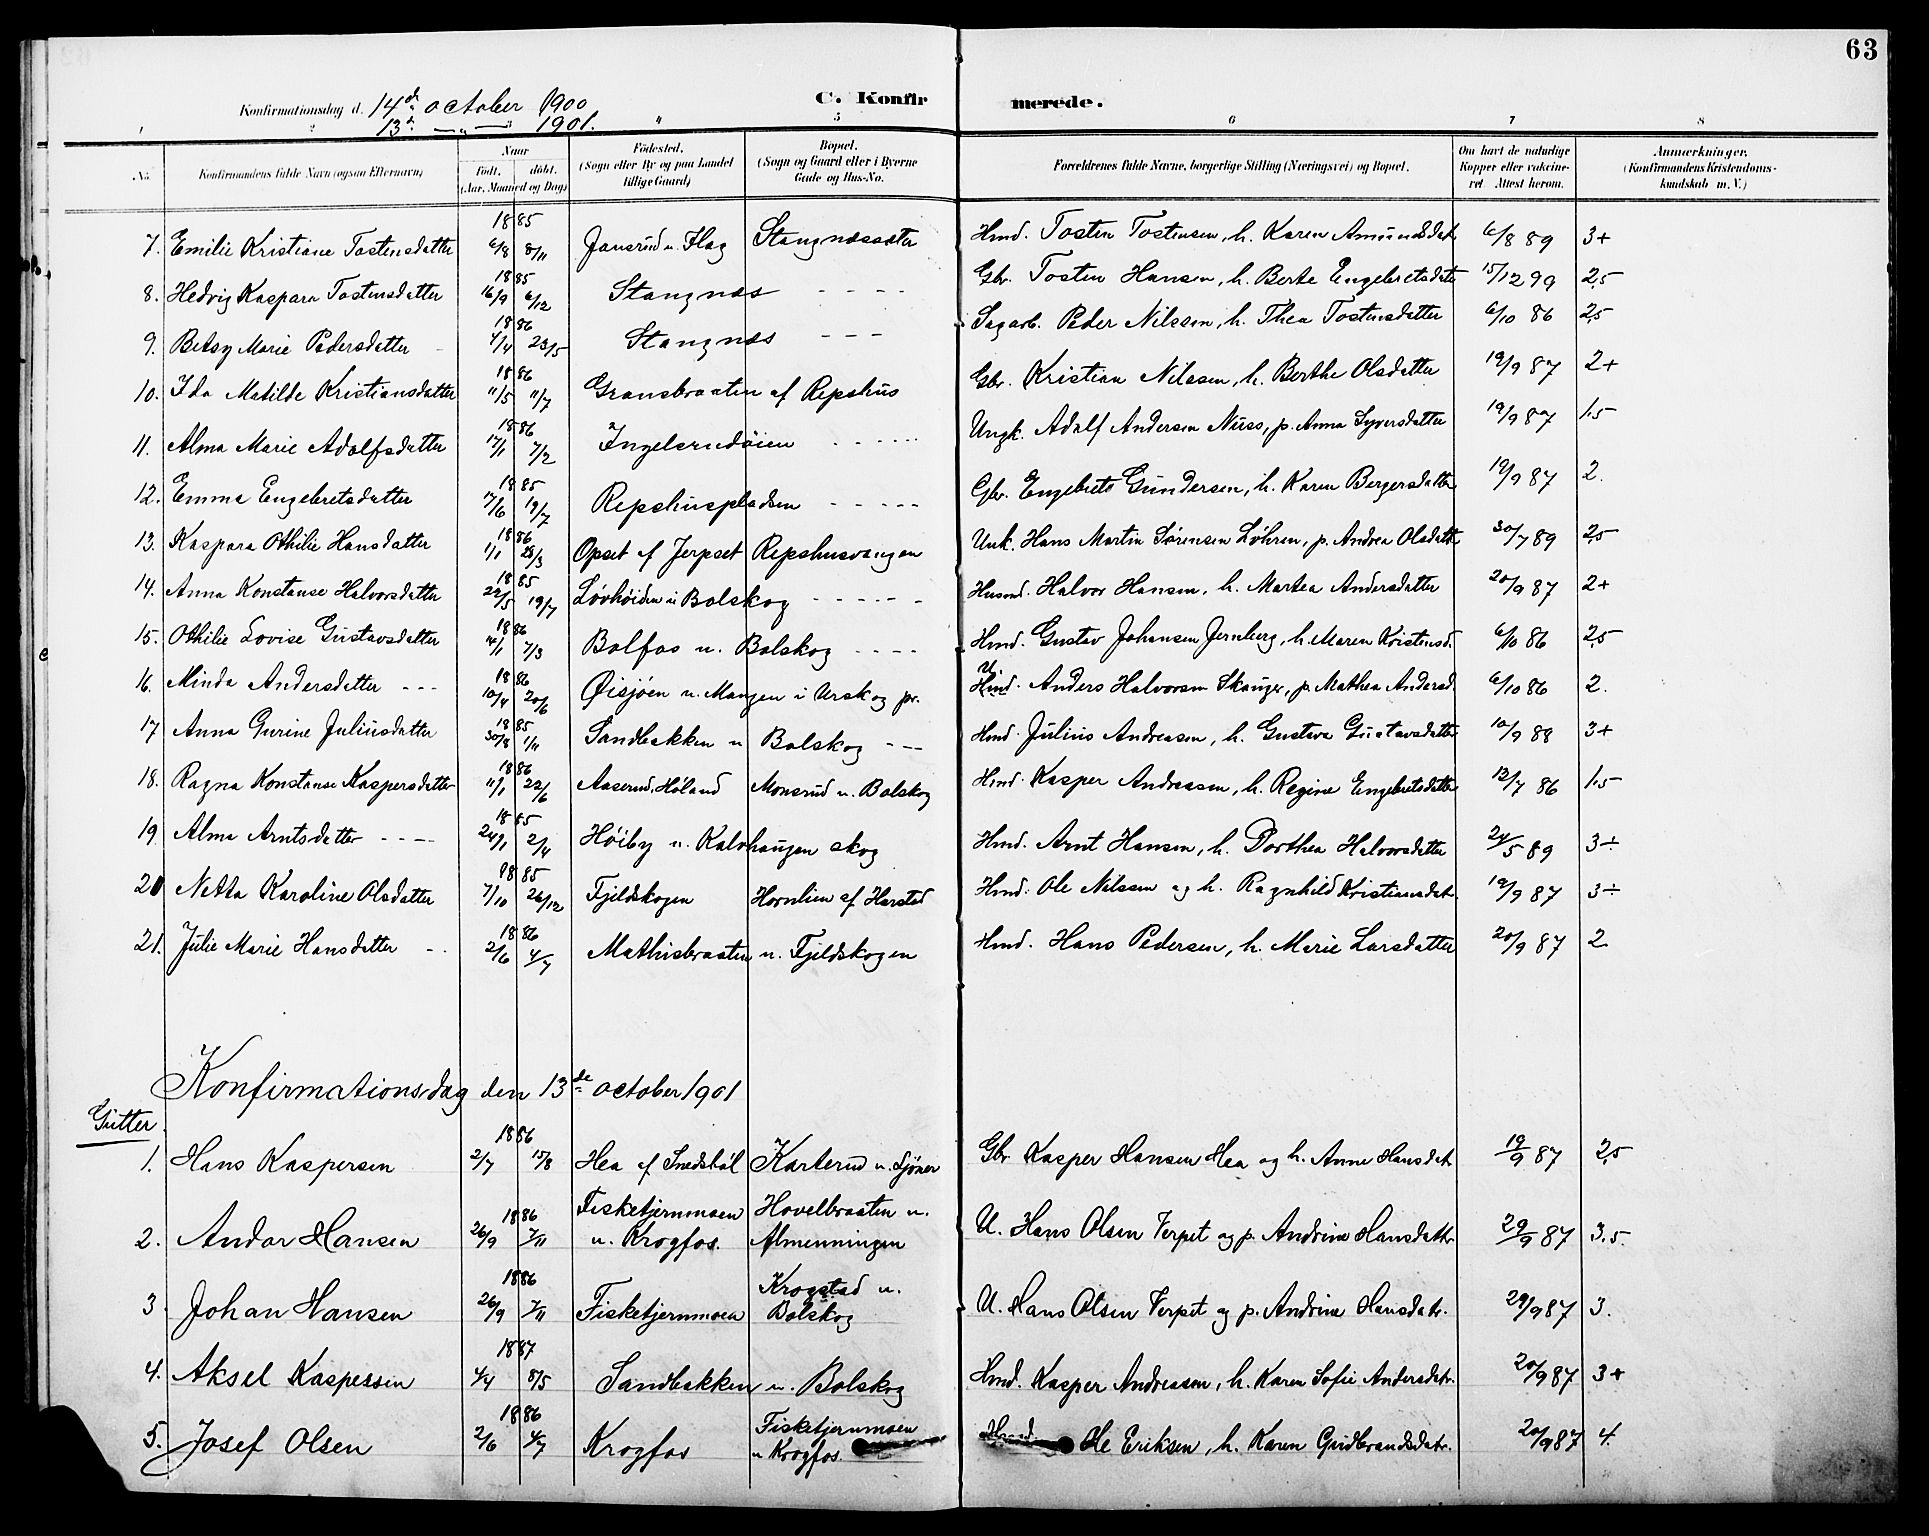 63
Konfirmationsdag d. 14de october 1900
13de — " — 1901.
C. Konfirmerede.
1 2 3 4 5 6 7 8
No. Konfirmandens fulde Navn (ogsaa Efternavn) Naar födt. döbt. (Aar, Maaned og Dag) Födested. (Sogn eller By og paa Landet tillige Gaard) Bopæl. (Sogn og Gaard eller i Byerne Gade og Hus-No. Forældrenes fulde Navne, borgerlige Stilling (Næringsvei) og Bopæl. Om havt de naturlige Kopper eller vakcineret. Attest herom. Anmærkninger. (Konfirmandens Kristendomskundskab m. V.)
7. Emilie Kristiane Tostensdatter 1885 6/8 8/11 Jansrud u. Flag Stangnæssæter Hmd. Tosten Tostensen, h. Karen Amundsdat. 6/8 89 3+
8. Hedvig Kaspara Tostensdatter 1885 16/9 6/12 Stangnæs - - - - Gbr. Tosten Hansen, h. Berte Engebretsdatr 15/12 99 2,5
9. Betsy Marie Pedersdatter 1886 4/4 23/5 Stangnæs - - - Sagarb. Peder Nilssen, h. Thea Tostensdatter 6/10 86 2,5
10. Ida Matilde Kristiansdatter 1886 11/5 11/7 Gransbraaten af Repshus Gbr. Kristian Nilssen, h. Berthe Olsdatter 19/9 87 2+
11. Alma Marie Adolfsdatter 1886 17/1 7/2 Ingelsrudøien - - - - - Ungk. Adolf Andersen Næss, p. Anna Syversdatter 19/9 87 1.5
12. Emma Engebretsdatter 1885 7/6 19/7 Repshuspladsen - - - - - Gbr. Engebret Gundersen, h. Karen Bergersdatter 19/9 87 2.
13. Kaspara Othilie Hansdatter 1886 1/1 28/3 Opset af Jerpset Repshusvangen Unk. Hans Martin Sørensen Løhren, p. Andrea Olsdatt. 30/7 89 2,5
14. Anna Konstanse Halvorsdatter 1885 22/5 19/7 Løvhøiden u Bolskog - - - - - Husmd. Halvor Hansen, h. Martea Andersdatter 20/9 87 2+
15. Othilie Lovise Gustavsdatter 1886 4/1 7/3 Bolfos u. Bolskog - - - - Hmd. Gustav Johansen Jernberg, h. Maren Kristensd. 6/10 86 2,5
16. Minda Andersdatter - - - 1886 10/4 20/6 Øisjøen u. Mangen i Urskog pr. U. Hmd. Anders Halvorsen Skauger, p. Mathea Andersd. 6/10 86 2.
17 Anna Gurine Juliusdatter 1885 30/8 1/11 Sandbakken u Bolskog - - - Hmd. Julius Andreasen, h. Gustava Gustavsdatter 10/9 88 3+
18. Ragna Konstanse Kaspersdatter 1886 11/1 22/6 Aaserud, Høland Monsrud u. Bolskog Hmd. Kasper Andreassen, h. Regine Engebretsdatter 13/7 86 1.5
19. Alma Arntsdatter - - - - 1885 24/1 2/4 Høiby u. Kalvhaugen skog Hmd. Arnt Hansen, h. Dorthea Halvorsdatter 24/5 89 3÷
20 Netta Karoline Olsdatter 1885 7/10 26/12 Fjeldskogen Hornlien af Harstad Hmd. Ole Nilssen og h. Ragnhild Kristiansdatr. 19/9 87 3÷
21. Julie Marie Hansdatter - - 1886 2/6 4/7 Mathisbraaten u. Fjeldskogen Hmd. Hans Pedersen, h. Marie Larsdatter 20/9 87 2
Konfirmationsdag den 13de october 1901
Gutter.
1. Hans Kaspersen 1886 2/7 15/8 Hea af Snedsbøl Karterud u. Sjøner Gbr Kasper Hansen Hea og h. Anne Hansdat. 19/9 87 2,5
2. Andor Hansen 1886 26/9 7/11 Fisketjernmoen u. Krogfos. Hovelbraaten u. Almenningen U. Hans Olsen Verpet og p. Andrine Hansdattr 29/9 87 3.5.
3 Johan Hansen 1886 26/9 7/11 Fisketjernmoen Krogstad u. Bolskog U. Hans Olsen Verpet og p. Andrine Hansdatr. 29/9 87 3.
4. Aksel Kaspersen 1887 4/4 8/5 Sandbakken u. Bolskog Hmd. Kasper Andreassen, h. Karen Sofie Andersdatr. 20/9 87 3+
5. Josef Olsen 1886 2/6 4/7 Krogfos Fisketjernmoen u Krogfos. Hmd. Ole Eriksen, h. Karen Gudbrandsdatr. 20/9 87 4.